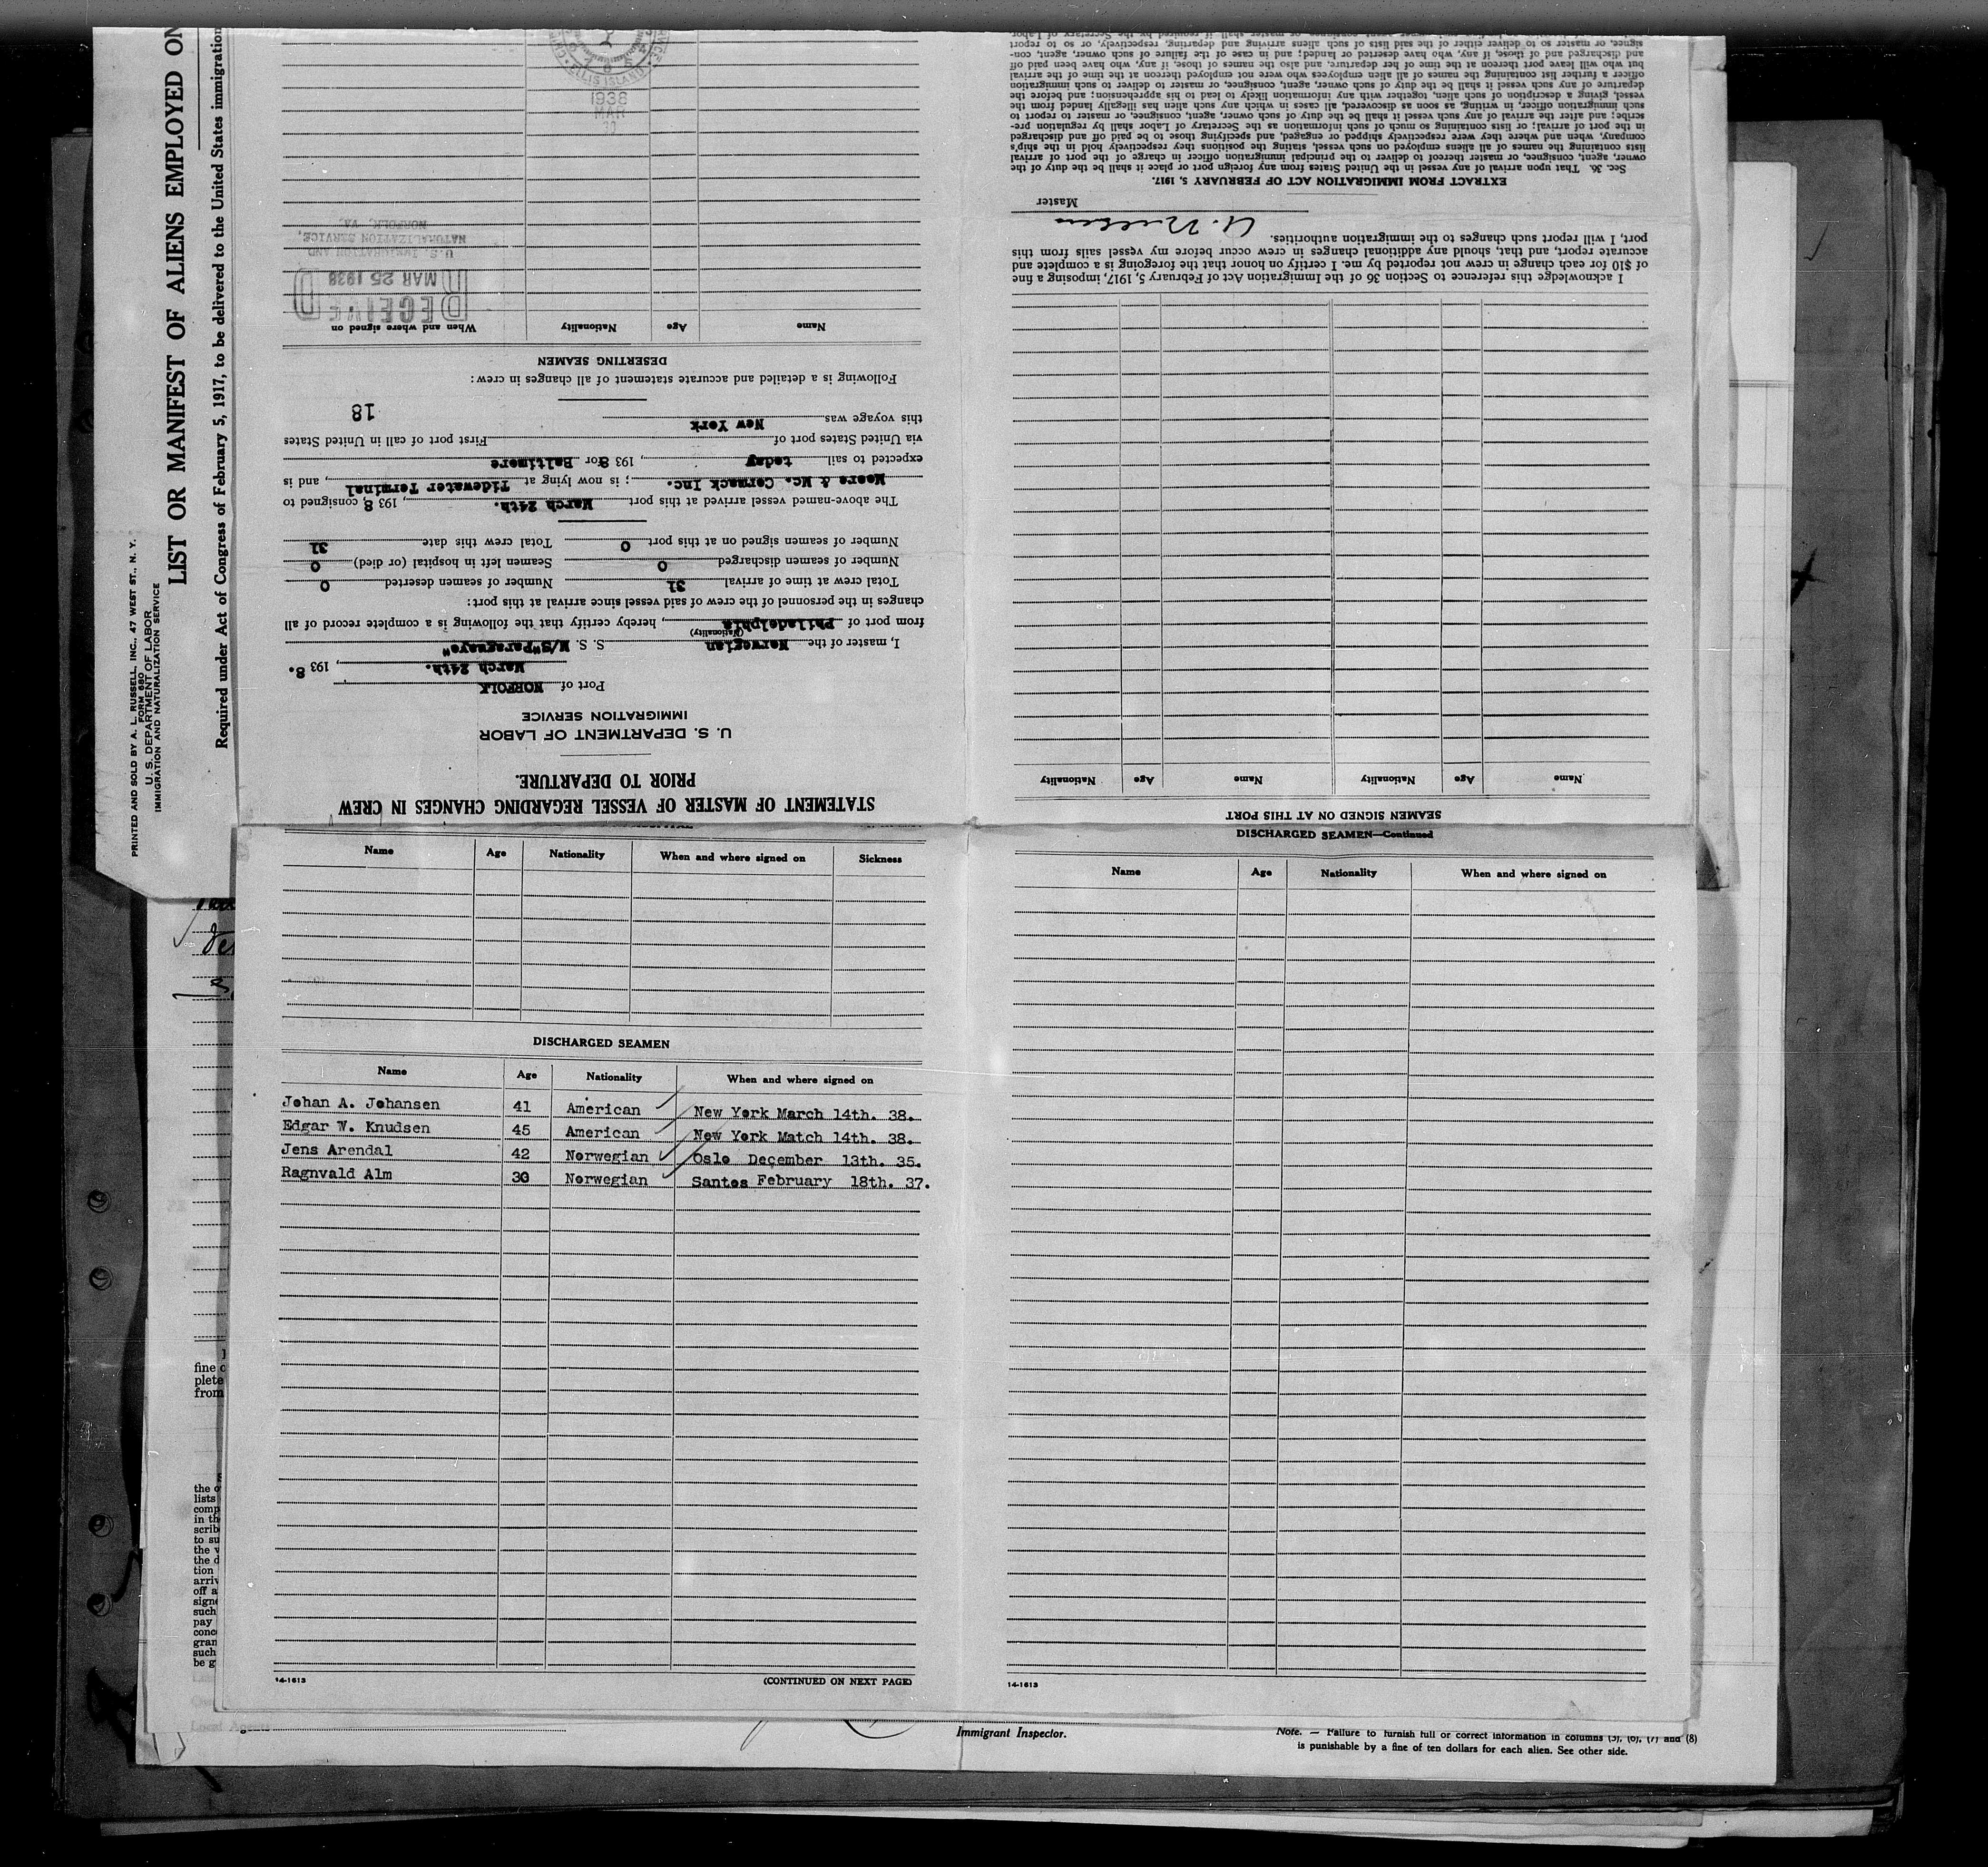 PRINTED AND SOLD BY A. L. RUSSELL, INC., 47 WEST ST., N. Y.
FORM 680
U. S. DEPARTMENT OF LABOR
IMMIGRATION AND NATURALIZATION SERVICE
LIST OR MANIFEST OF ALIENS EMPLOYED ON
Required under Act of Congress of February 5, 1917, to be delivered to the United States immigration
STATEMENT OF MASTER OF VESSEL REGARDING CHANGES IN CREW
PRIOR TO DEPARTURE.
U. S. DEPARTMENT OF LABOR
IMMIGRATION SERVICE
Port of NORFOLK
March 24th. , 193 8.
I, master of the Norwegian S. S. M/S"Paraguayo"
(Nationality)
from port of Philadelphia, hereby certify that the following is a complete record of all
changes in the personnel of the crew of said vessel since arrival at this port:
Total crew at time of arrival 31 Number of seamen deserted 0
Number of seamen discharged 0 Seamen left in hospital (or died) 0
Number of seamen signed on at this port 0 Total crew this date 31
The above-named vessel arrived at this port March 24th. , 193 8, consigned to
Moore & Mc. Cormack Inc. ; is now lying at Tidewater Terminal, and is
expected to sail today , 193 8 for Baltimore
via United States port of First port of call in United States
this voyage was New York
18
Following is a detailed and accurate statement of all changes in crew:
DESERTING SEAMEN
Name Age Nationality When and where signed on
RECEIVED
MAR 25 1938
U. S. IMMIGRATION AND
NATURALIZATION SERVICE,
NORFOLK, VA.
1938
MAR
30
ELLIS ISLAND
SEAMEN SIGNED ON AT THIS PORT
Name Age Nationality Name Age Nationality
I acknowledge this reference to Section 36 of the Immigration Act of February 5, 1917, imposing a fine
of $10 for each change in crew not reported by me. I certify on honor that the foregoing is a complete and
accurate report, and that, should any additional changes in crew occur before my vessel sails from this
port, I will report such changes to the immigration authorities.
Master
EXTRACT FROM IMMIGRATION ACT OF FEBRUARY 5, 1917.
Sec. 36. That upon arrival of any vessel in the United States from any foreign port or place it shall be the duty of the
owner, agent, consignee, or master thereof to deliver to the principal immigration officer in charge of the port of arrival
lists containing the names of all aliens employed on such vessel, stating the positions they respectively hold in the ship's
company, when and where they were respectively shipped or engaged, and specifying those to be paid off and discharged
in the port of arrival; or lists containing so much of such information as the Secretary of Labor shall by regulation pre-
scribe; and after the arrival of any such vessel it shall be the duty of such owner, agent, consignee, or master to report to
such immigration officer, in writing, as soon as discovered, all cases in which any such alien has illegally landed from the
vessel, giving a description of such alien, together with any information likely to lead to his apprehension; and before the
departure of any such vessel it shall be the duty of such owner, agent, consignee, or master to deliver to such immigration
officer a further list containing the names of all alien employees who were not employed thereon at the time of the arrival
but who will leave port thereon at the time of her departure, and also the names of those, if any, who have been paid off
and discharged and of those, if any, who have deserted or landed; and in case of the failure of such owner, agent, con-
signee, or master so to deliver either of the said lists of such aliens arriving and departing, respectively, or so to report
Name Age Nationality When and where signed on Sickness
DISCHARGED SEAMEN
Name Age Nationality When and where signed on
Johan A. Johansen 41 American New York March 14th. 38.
Edgar W. Knudsen 45 American New York Match 14th. 38.
Jens Arendal 42 Norwegian Oslo December 13th. 35.
Ragnvald Alm 30 Norwegian Santos February 18th. 37.
14-1613 (CONTINUED ON NEXT PAGE)
DISCHARGED SEAMEN—Continued
Name Age Nationality When and where signed on
14-1613
fine
plete
from
the
lists
comp
in th
scrib
to su
the v
the d
tion
arriv
off a
signe
such
pay
conc
gran
such
be g
Immigrant Inspector.
Note. — Failure to furnish full or correct information in columns (5), (6), (7) and (8)
is punishable by a fine of ten dollars for each alien. See other side.